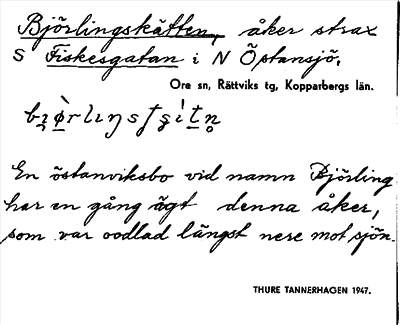 Björlingskätten, åker strax
S Fiskesgatan i N Östansjö,
Ore sn, Rättviks tg, Kopparbergs län.
En östanviksbo vid namn Björling
har en gång ägt denna åker,
som var oodlad längst nere mot sjön.
THURE TANNERHAGEN 1947.